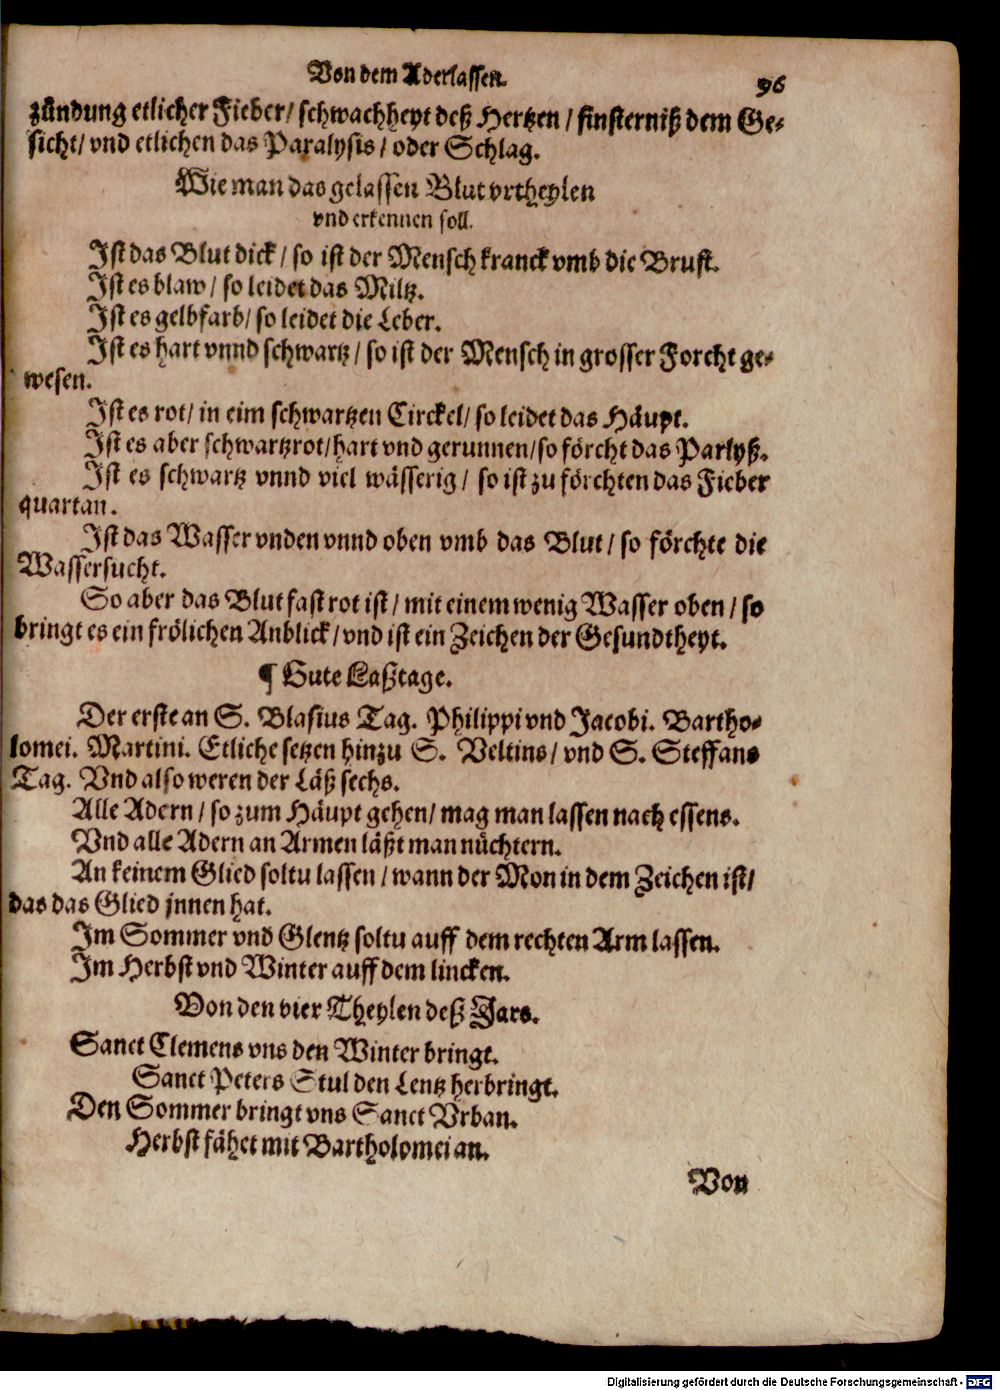 Von dem Aderlassen.
96
zündung etlicher Fieber/ schwachheyt deß Hertzen / finsterniß dem Ge-
sicht/ vnd etlichen das Paralysis / oder Schlag.
Wie man das gelassen Blut vrtheylen
vnd erkennen soll.
Ist das Blut dick / so ist der Mensch kranck vmb die Brust.
Ist es blaw / so leidet das Miltz.
Ist es gelbfarb/ so leidet die Leber.
Ist es hart vnnd schwartz / so ist der Mensch in grosser Forcht ge-
wesen.
Ist es rot/ in eim schwartzen Circkel/ so leidet das Häupt.
Ist es aber schwartzrot/hart vnd gerunnen/so förcht das Parlyß.
Ist es schwartz vnnd viel wässerig / so ist zu förchten das Fieber
quartan.
Ist das Wasser vnden vnnd oben vmb das Blut / so förchte die
Wassersucht.
So aber das Blut fast rot ist / mit einem wenig Wasser oben / so
bringt es ein frölichen Anblick / vnd ist ein Zeichen der Gesundtheyt.
¶ Gute Laßtage.
Der erste an S. Blasius Tag. Philippi vnd Jacobi. Bartho-
lomei. Martini. Etliche setzen hinzu S. Veltins / vnd S. Steffans
Tag. Vnd also weren der Läß sechs.
Alle Adern / so zum Häupt gehen/ mag man lassen nach essens.
Vnd alle Adern an Armen läßt man nüchtern.
An keinem Glied soltu lassen / wann der Mon in dem Zeichen ist/
das das Glied jnnen hat.
Im Sommer vnd Glentz soltu auff dem rechten Arm lassen.
Im Herbst vnd Winter auff dem lincken.
Von den vier Theylen deß Jars.
Sanct Clemens vns den Winter bringt.
Sanct Peters Stul den Lentz herbringt.
Den Sommer bringt vns Sanct Vrban.
Herbst fähet mit Bartholomei an.
Von
Digitalisierung gefördert durch die Deutsche Forschungsgemeinschaft - DFG